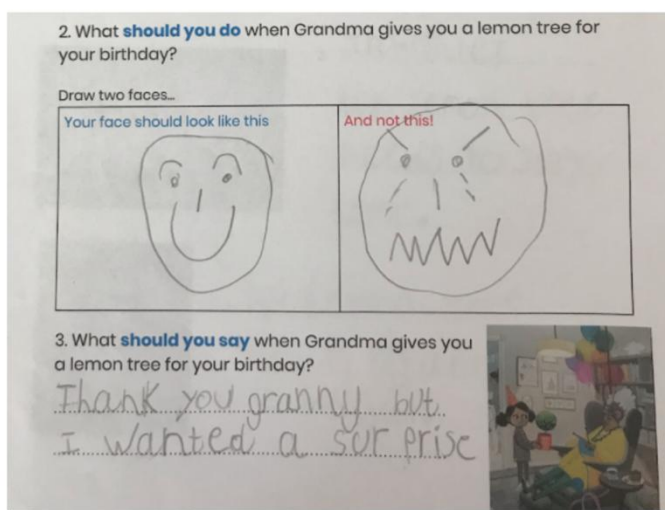 2. What should you do when Grandma gives you a lemon tree for
your birthday?
Draw two faces...
Your face should look like this
And not this!
3. What should you say when Grandma gives you
a lemon tree for your birthday?
Thank you granny but
I wanted a sur prise